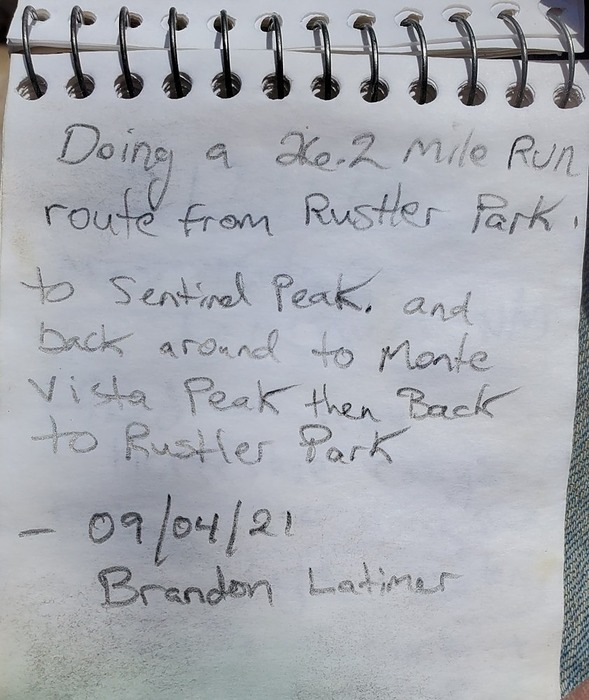 Doing a 26.2 Mile Run
route from Rustler Park.
to Sentinel Peak. and
back around to Monte
Vista Peak then Back
to Rustler Park
- 09/04/21
Brandon Latimer